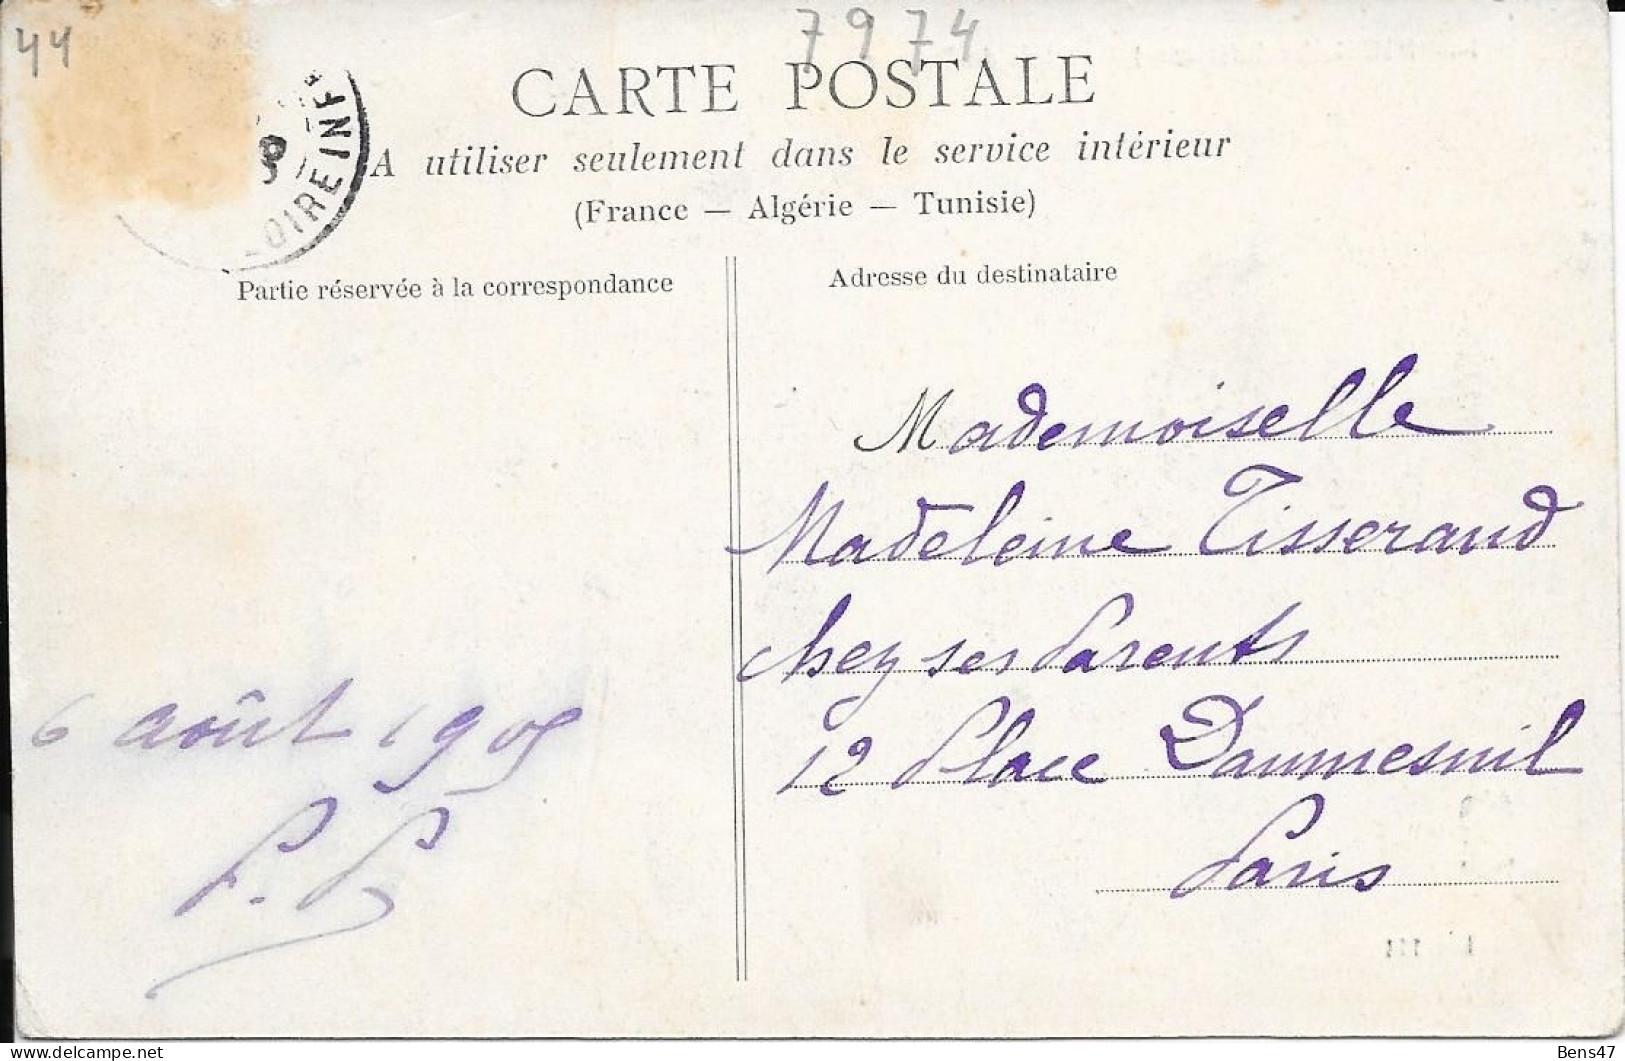 44
7974
CARTE POSTALE
A utiliser seulement dans le service intérieur
(France — Algérie — Tunisie)
OIRE INF
Partie réservée à la correspondance
Adresse du destinataire
Mademoiselle
Madeleine Tisserand
chez ses Parents
12 Place Daumesnil
Paris
6 août 1905
P. P
delcampe.net
Bens47